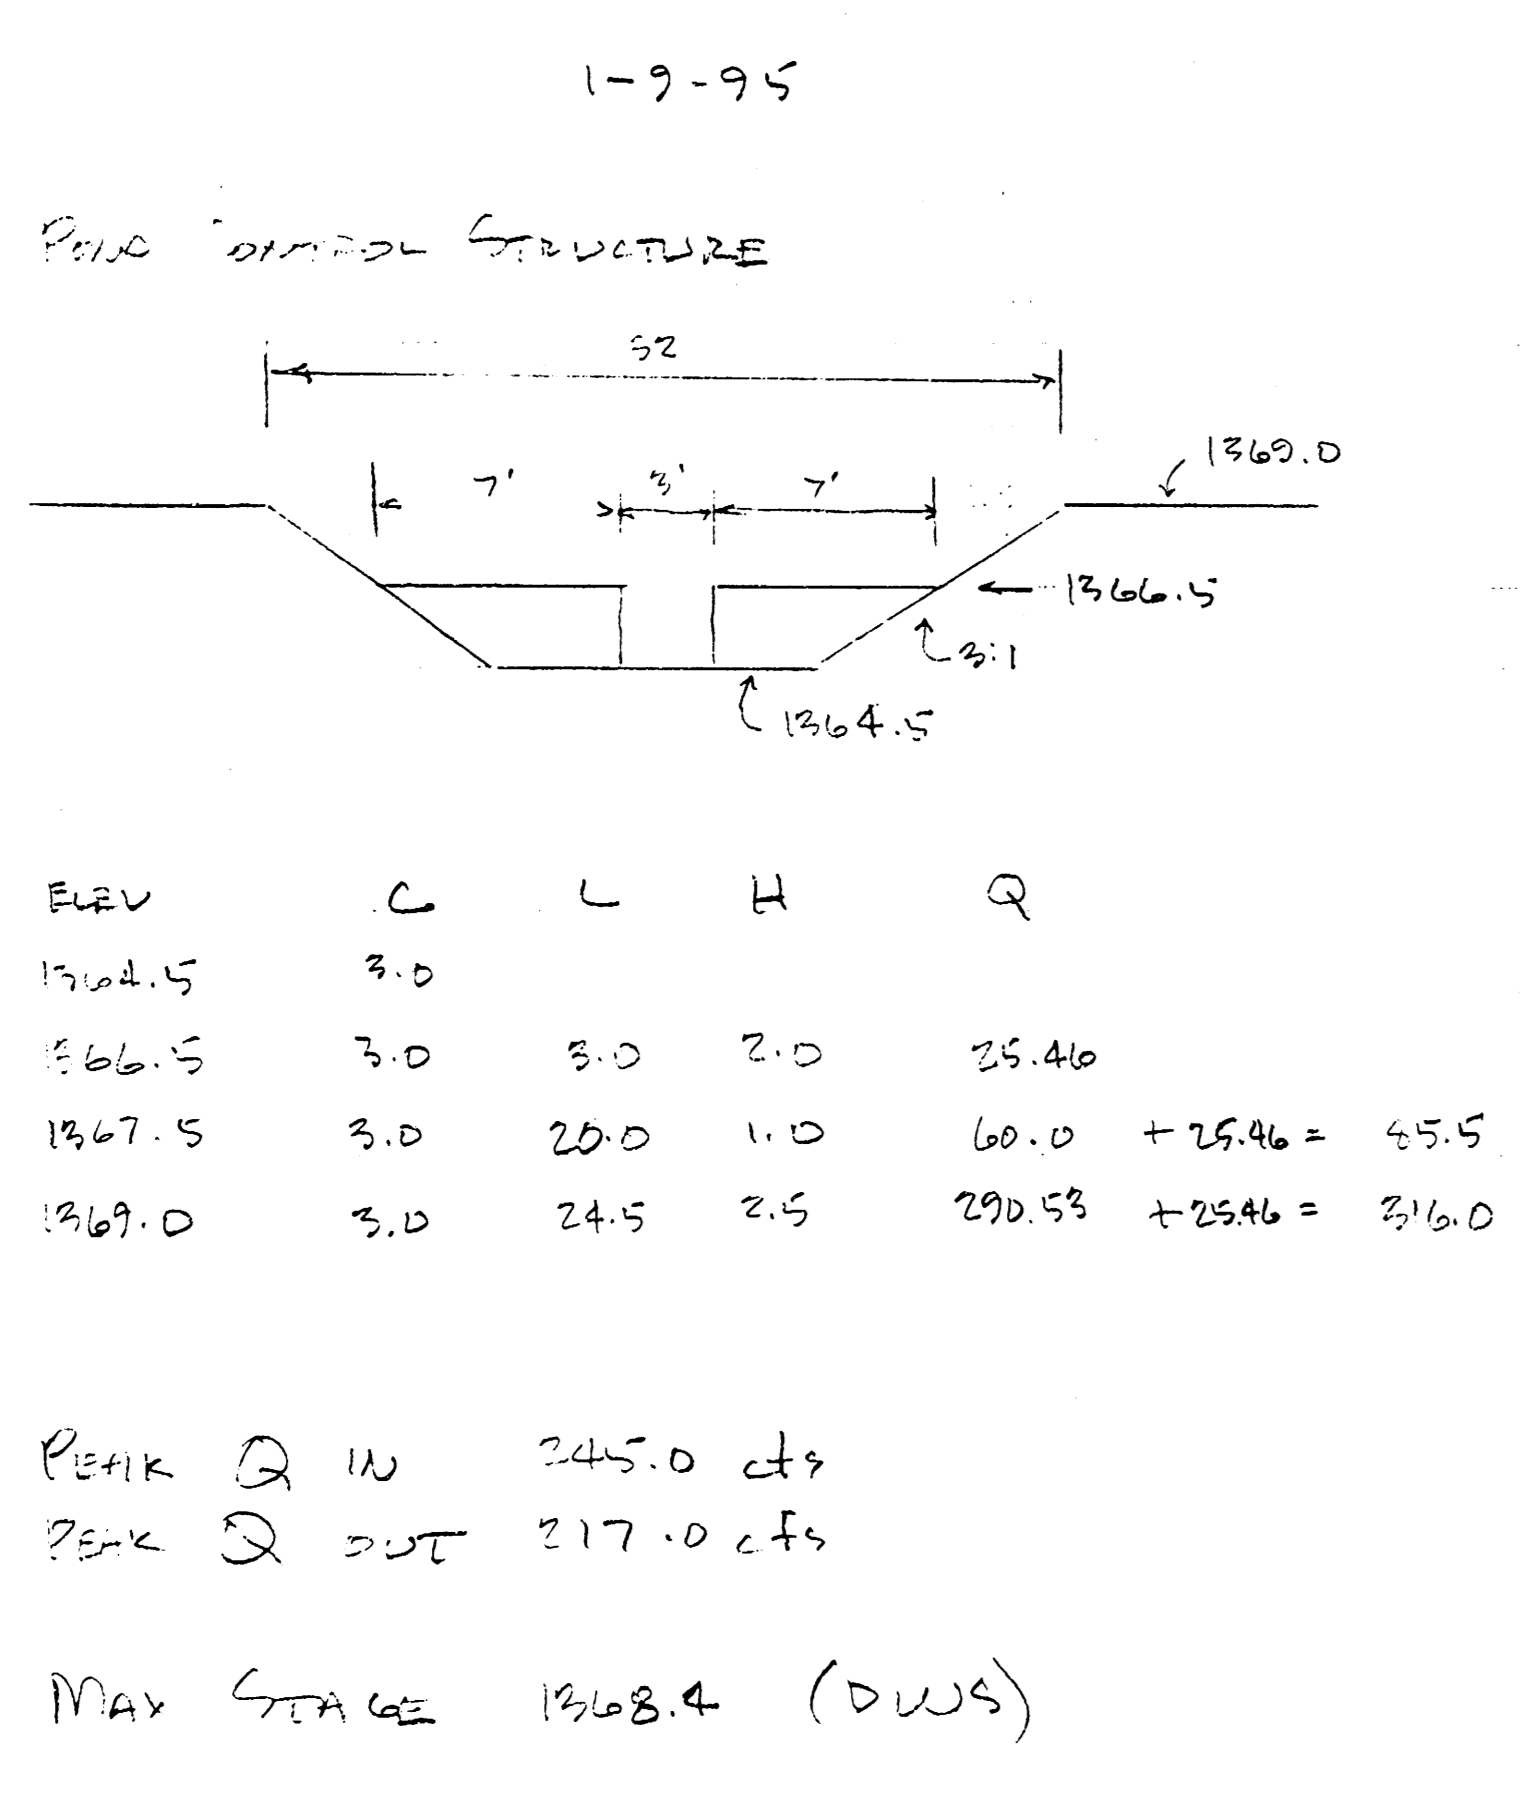 1-9-95
POND CONTROL STRUCTURE
32
7' 3' 7'
1369.0
1366.5
3:1
1364.5
ELEV C L H Q
1364.5 3.0
1366.5 3.0 3.0 2.0 25.46
1367.5 3.0 20.0 1.0 60.0 + 25.46 = 85.5
1369.0 3.0 24.5 2.5 290.53 + 25.46 = 316.0
PEAK Q IN 245.0 cfs
PEAK Q OUT 217.0 cfs
MAX STAGE 1368.4 (DWS)